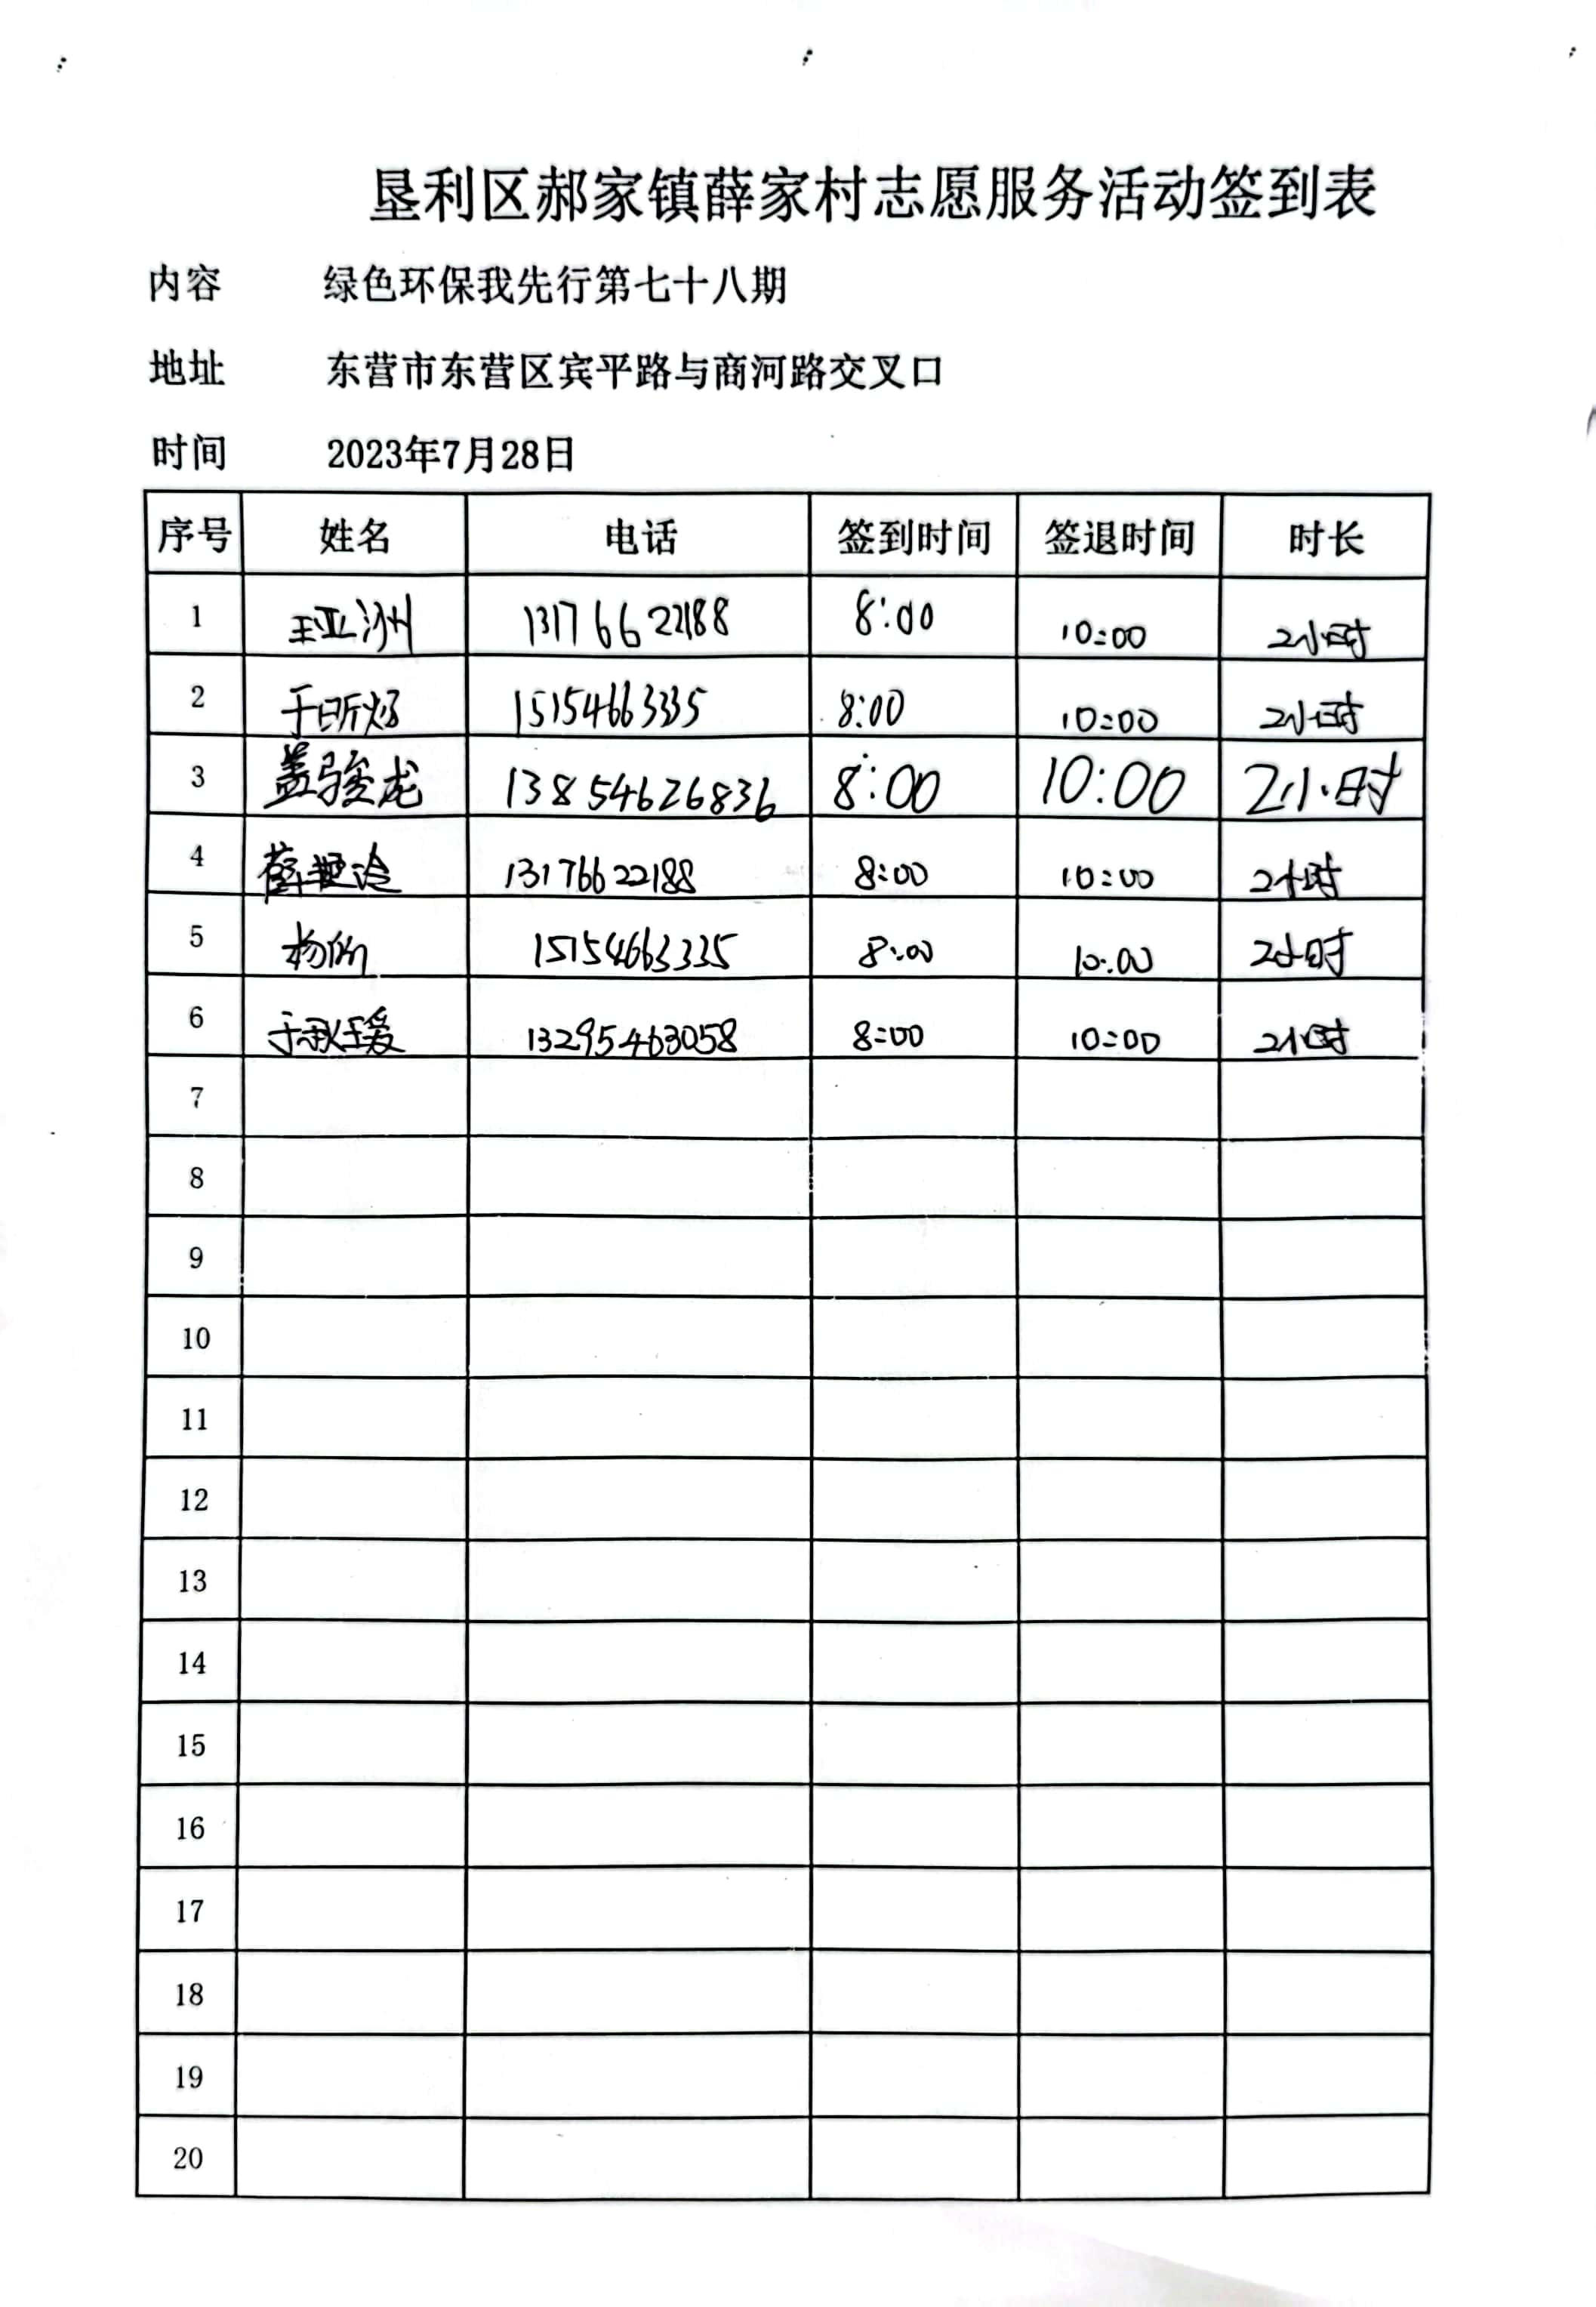 垦利区郝家镇薛家村志愿服务活动签到表
内容 绿色环保我先行第七十八期
地址 东营市东营区宾平路与商河路交叉口
时间 2023年7月28日
序号 姓名 电话 签到时间 签退时间 时长
1 王亚洲 13176622188 8:00 10:00 2小时
2 于昕 15154663335 8:00 10:00 2小时
3 盖骏龙 13854626836 8:00 10:00 2小时
4 薛 13176622188 8:00 10:00 2小时
5 杨 15154663335 8:00 10:00 2小时
6 于秋瑗 13295463058 8:00 10:00 2小时
7
8
9
10
11
12
13
14
15
16
17
18
19
20